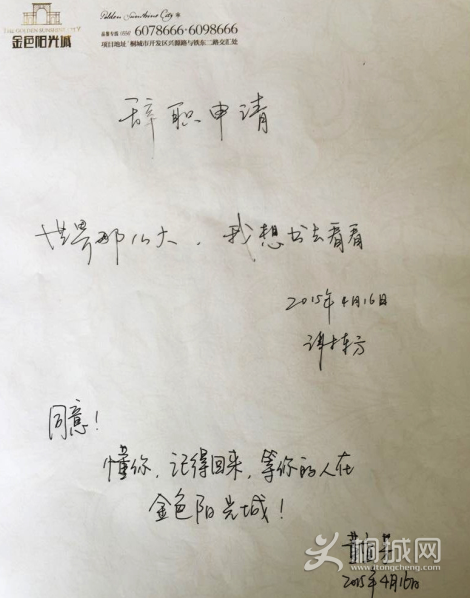 Golden Sunshine City
品鉴专线(0556) 6078666·6098666
金色阳光城
项目地址 桐城市开发区兴源路与铁东二路交汇处
辞职申请
世界那么大，我想出去看看
2015年4月16日
谭栋方
同意！
懂你，记得回来，等你的人在
金色阳光城！
2015年4月16日
桐城网
www.itongcheng.com